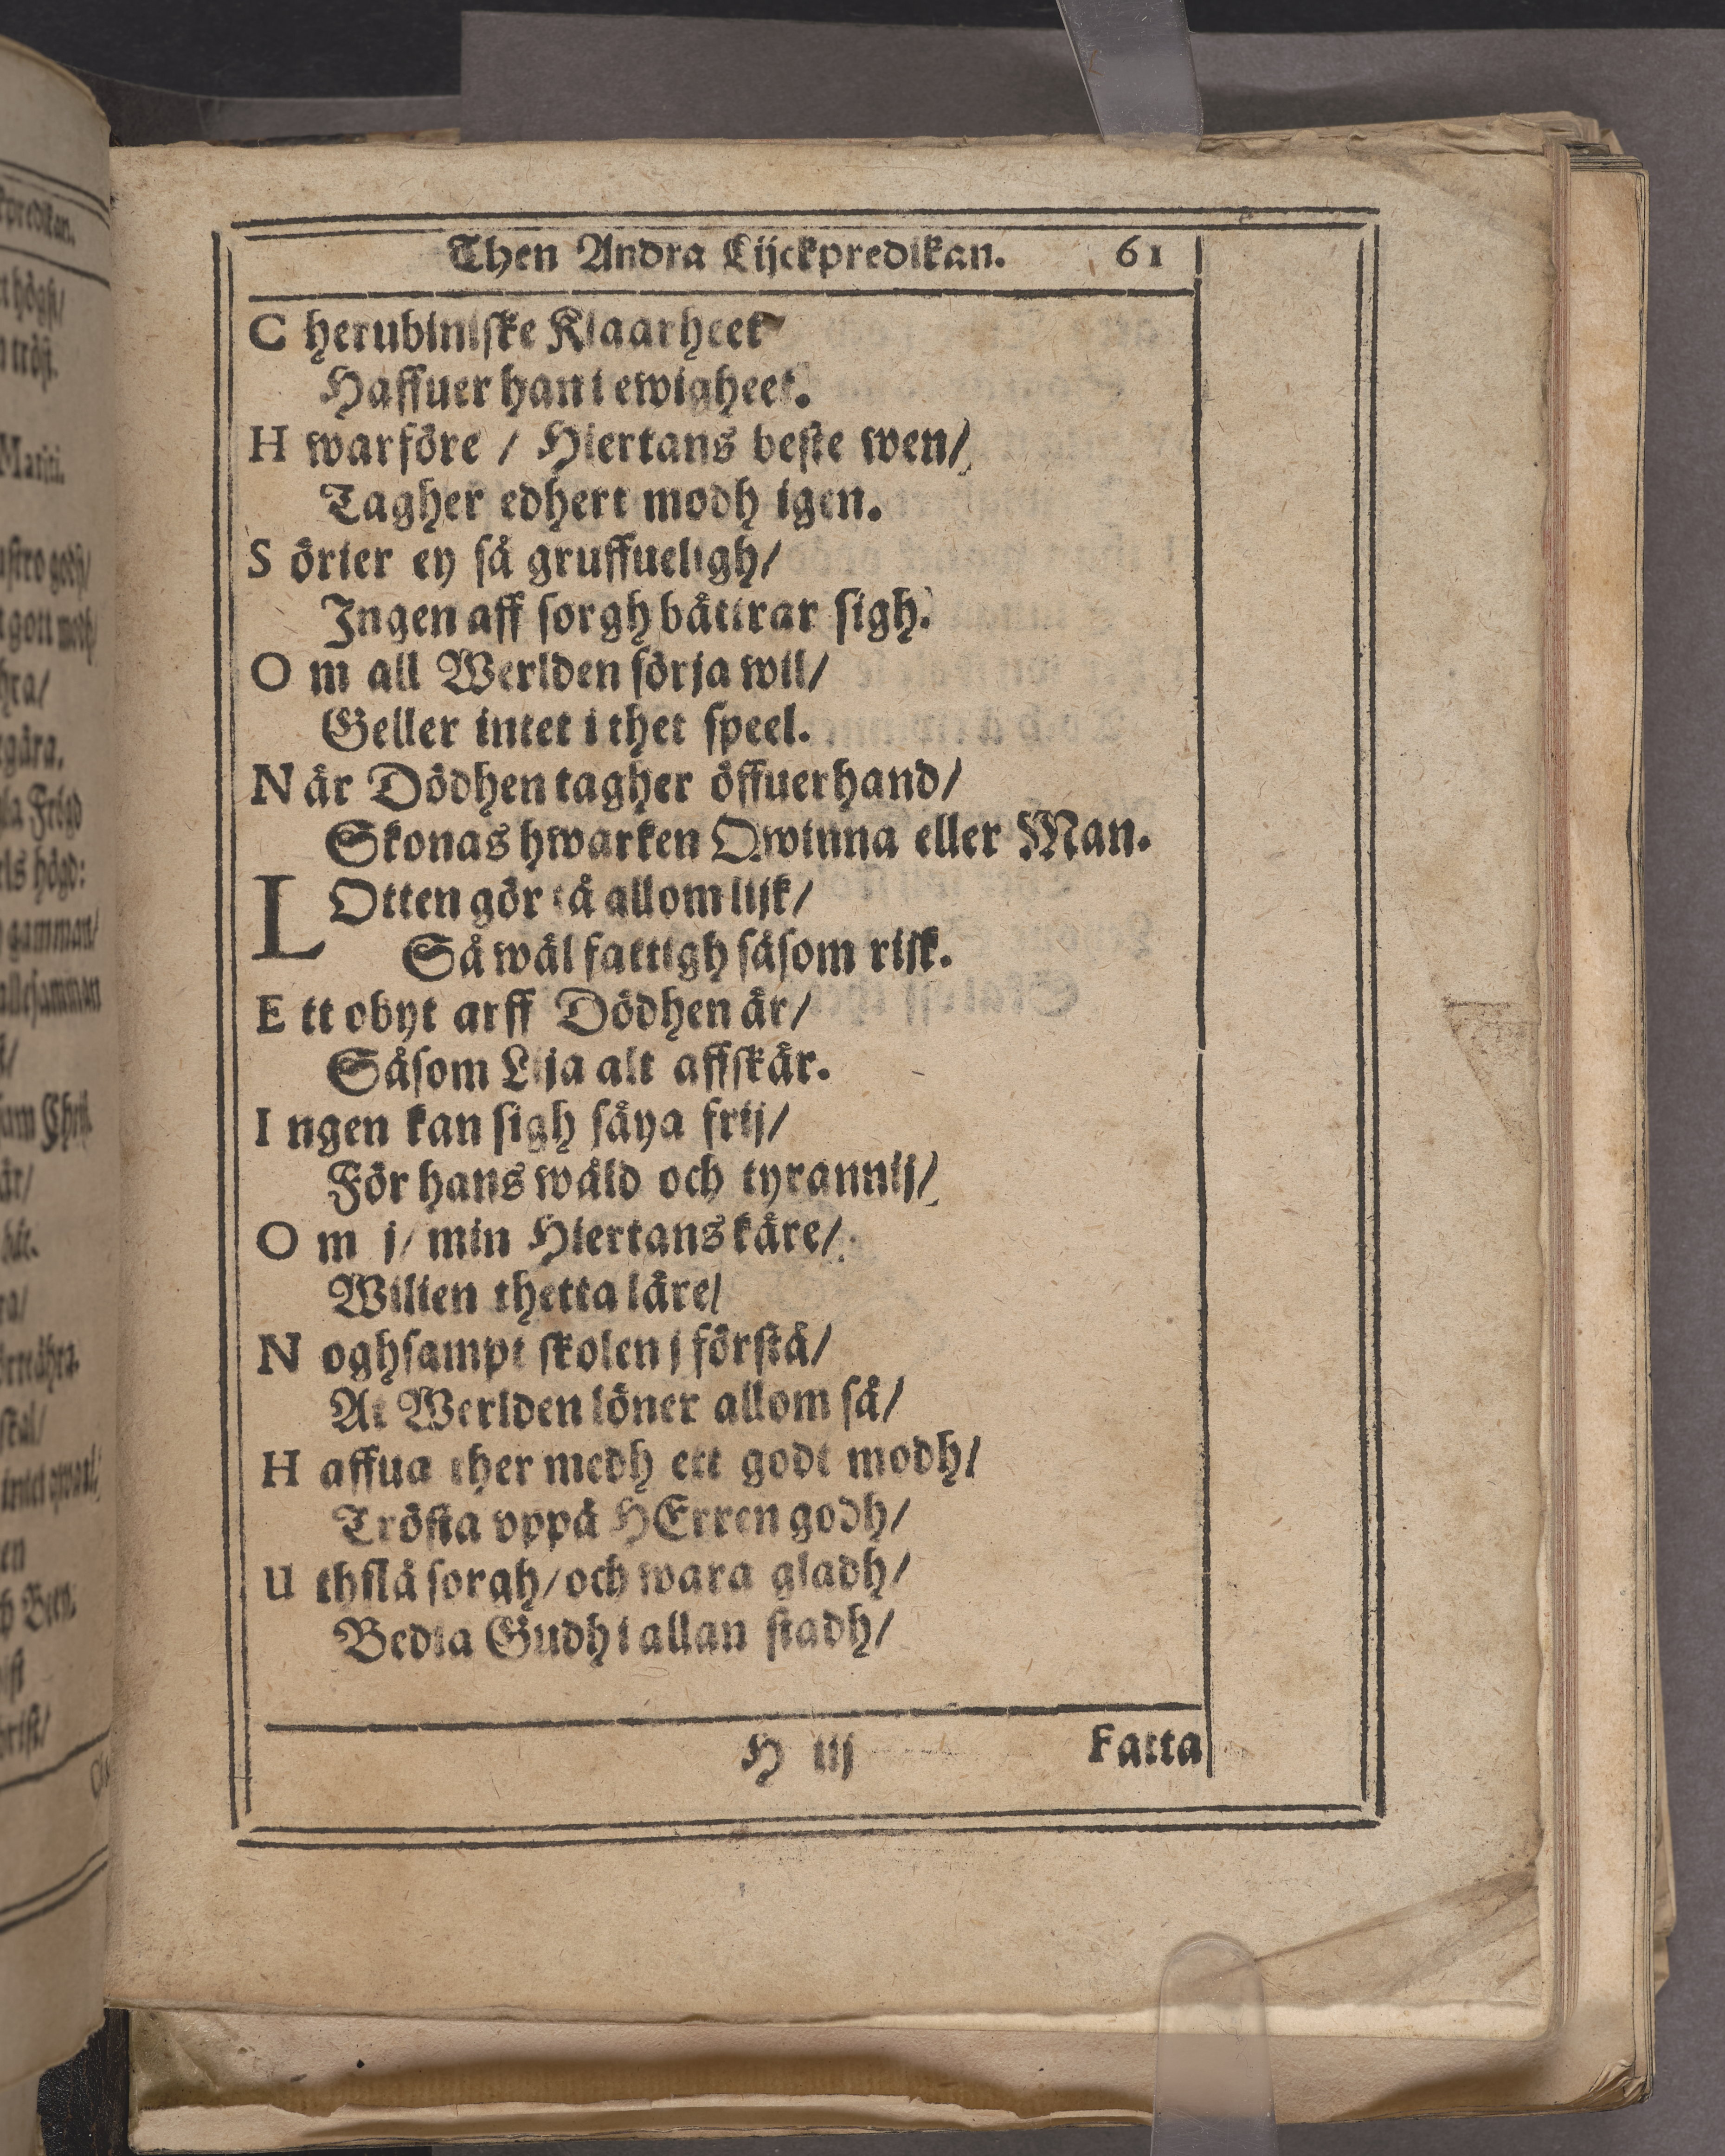 Then Andra Lijckpredikan. 61
C herubiniske Klaarheet
Haffuer han i ewigheet.
H warföre / Hiertans beste wen/
Tagher edhert modh igen.
S örier ey så gruffueligh/
Ingen aff sorgh båttrar sigh.
O m all Werlden sörja wil/
Geller intet i thet speel.
N är Dödhen tagher öffuerhand/
Skonas hwarken Qwinna eller Man.
L Otten gör tå allom lijk/
Så wäl fattigh såsom rijk.
E tt obyt arff Dödhen är/
Såsom Lija alt affskär.
I ngen kan sigh säya frij/
För hans wåld och tyrannij/
O m j/ min Hiertans käre/
Wilien thetta läre/
N oghsampt skolen j förstå/
At Werlden löner allom så/
H affua ther medh ett godt modh/
Trösta vppå HErren godh/
U thslå sorgh/ och wara gladh/
Bedia Gudh i allan stadh/
H iij Fatta
kpredikan.
t högst/
n tröst.
gott modh/
hra/
Frögd
els högd:
gamman/
allesamman
är/
ra/
skal/
en